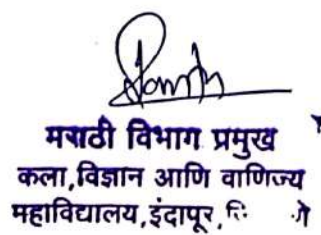 मराठी विभाग प्रमुख
कला,विज्ञान आणि वाणिज्य
महाविद्यालय,इंदापूर,